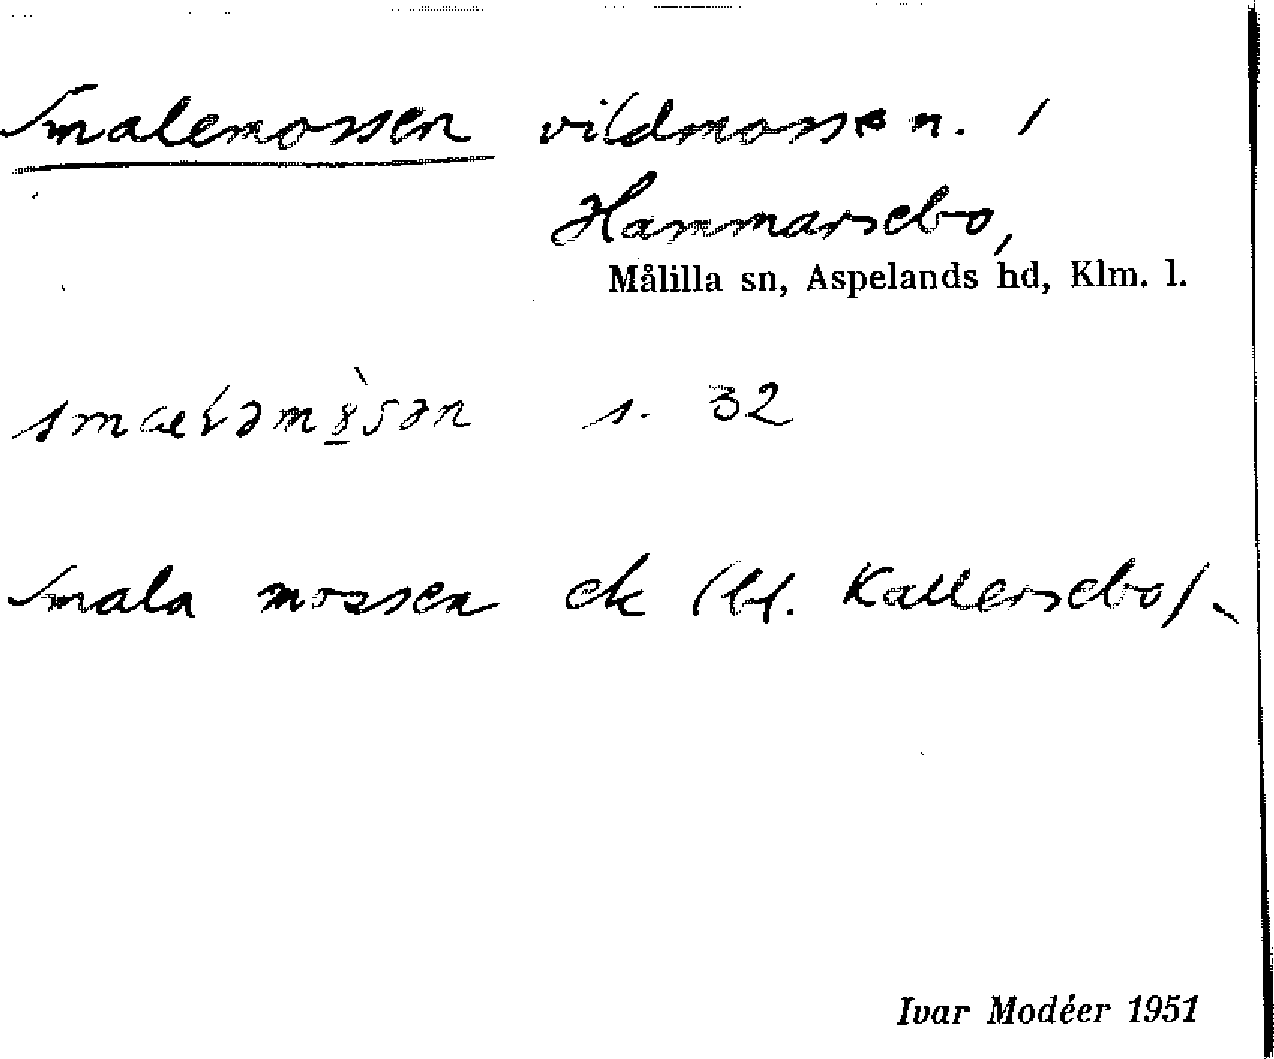 Smalemossen vildmosse n. /
Hammarsebo,
Målilla sn, Aspelands hd, Klm. l.
s. 32
Smala mossen ek (bl. Kallersebo).
Ivar Modéer 1951